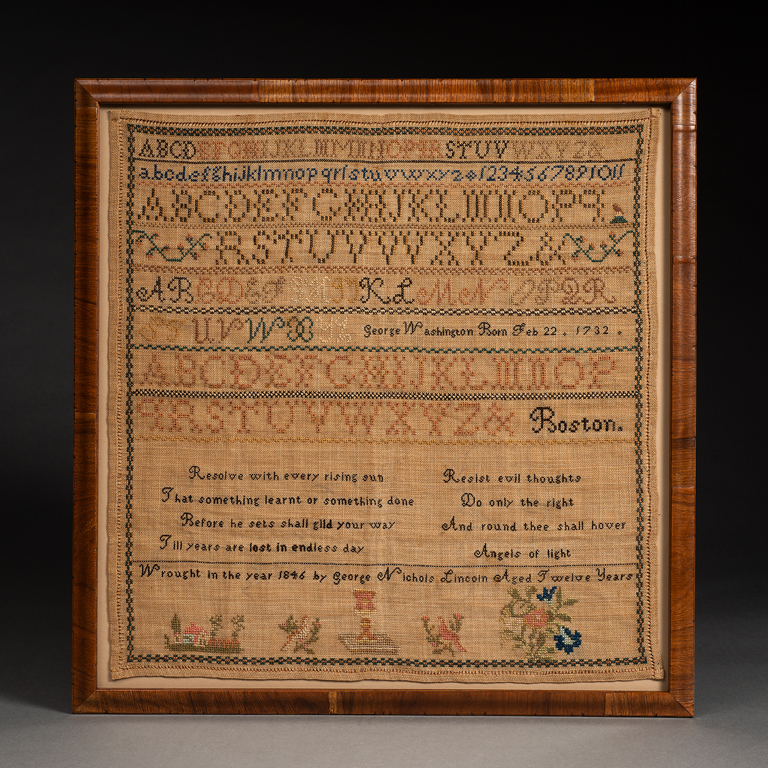 ABCDEFGHIJKLMNOPQRSTUVWXYZ&
abcdefghijklmnopqrſstuvwxyz&1234567891011
ABCDEFGHIJKLMNOPQ
RSTUVWXYZ&
ABCDEF KL MN OPQR
STUVWX George Washington Born Feb 22. 1732.
ABCDEFGHIJKLMNOP
QRSTUVWXYZ& Boston.
Resolve with every rising sun
That something learnt or something done
Before he sets shall gild your way
Till years are lost in endless day
Resist evil thoughts
Do only the right
And round thee shall hover
Angels of light
Wrought in the year 1846 by George Nichols Lincoln Aged Twelve Years